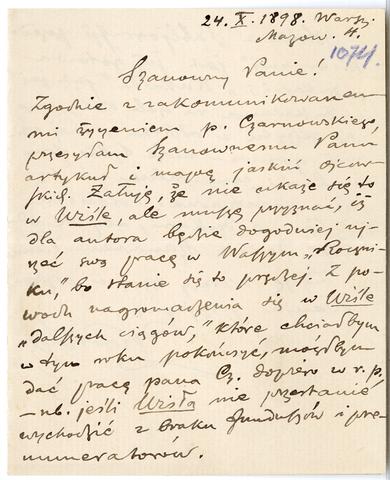 24. X. 1898. Warsz.
Mazow. 4.
1074.
Szanowny Panie!
Zgodnie z zakomunikowanem
mi życzeniem p. Czarnowskiego,
przesyłam Szanownemu Panu
artykuł i mapę jaskiń ojcow-
skich. Żałuję, że nie ukaże się to
w Wiśle, ale muszę przyznać, iż
dla autora będzie dogodniej uj-
rzeć swą pracę w Waszym „Roczni-
ku," bo stanie się to prędzej. Z po-
wodu nagromadzenia się w Wiśle
„dalszych ciągów," które chciałbym
w tym roku pokończyć, mógłbym
dać pracę pana Cz. dopiero w r. p.
— nb. jeśli Wisła nie przestanie
wychodzić z braku funduszów i pre-
numeratorów.